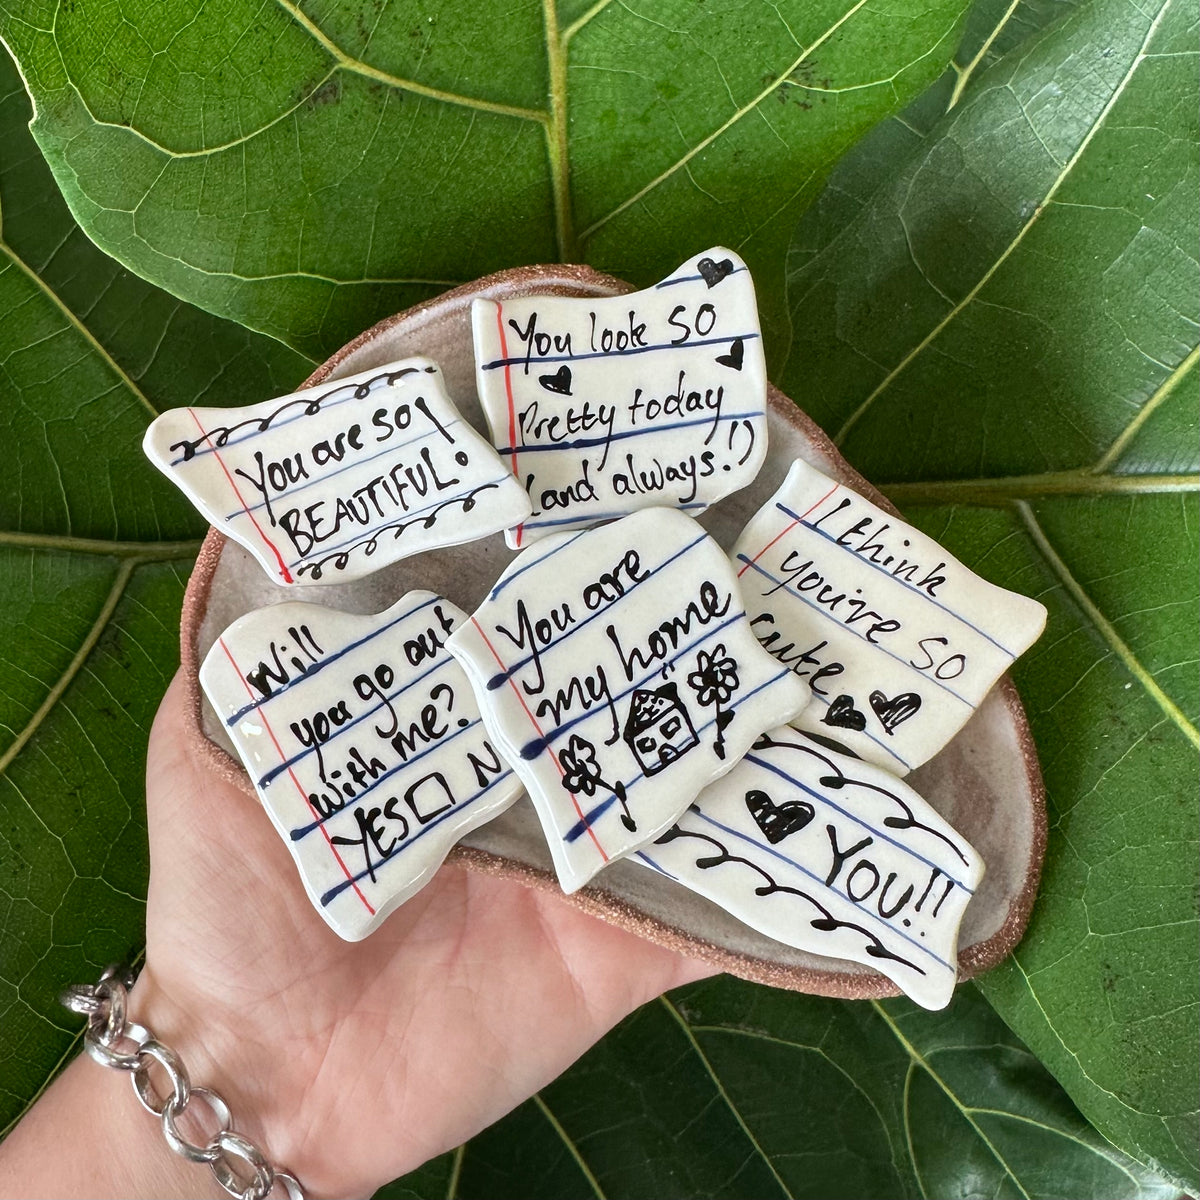 You look so
Pretty today
(and always!)
You are so
BEAUTIFUL!
I think
you're so
cute
You are
my home
Will
you go out
with me?
YES N
YOU!!